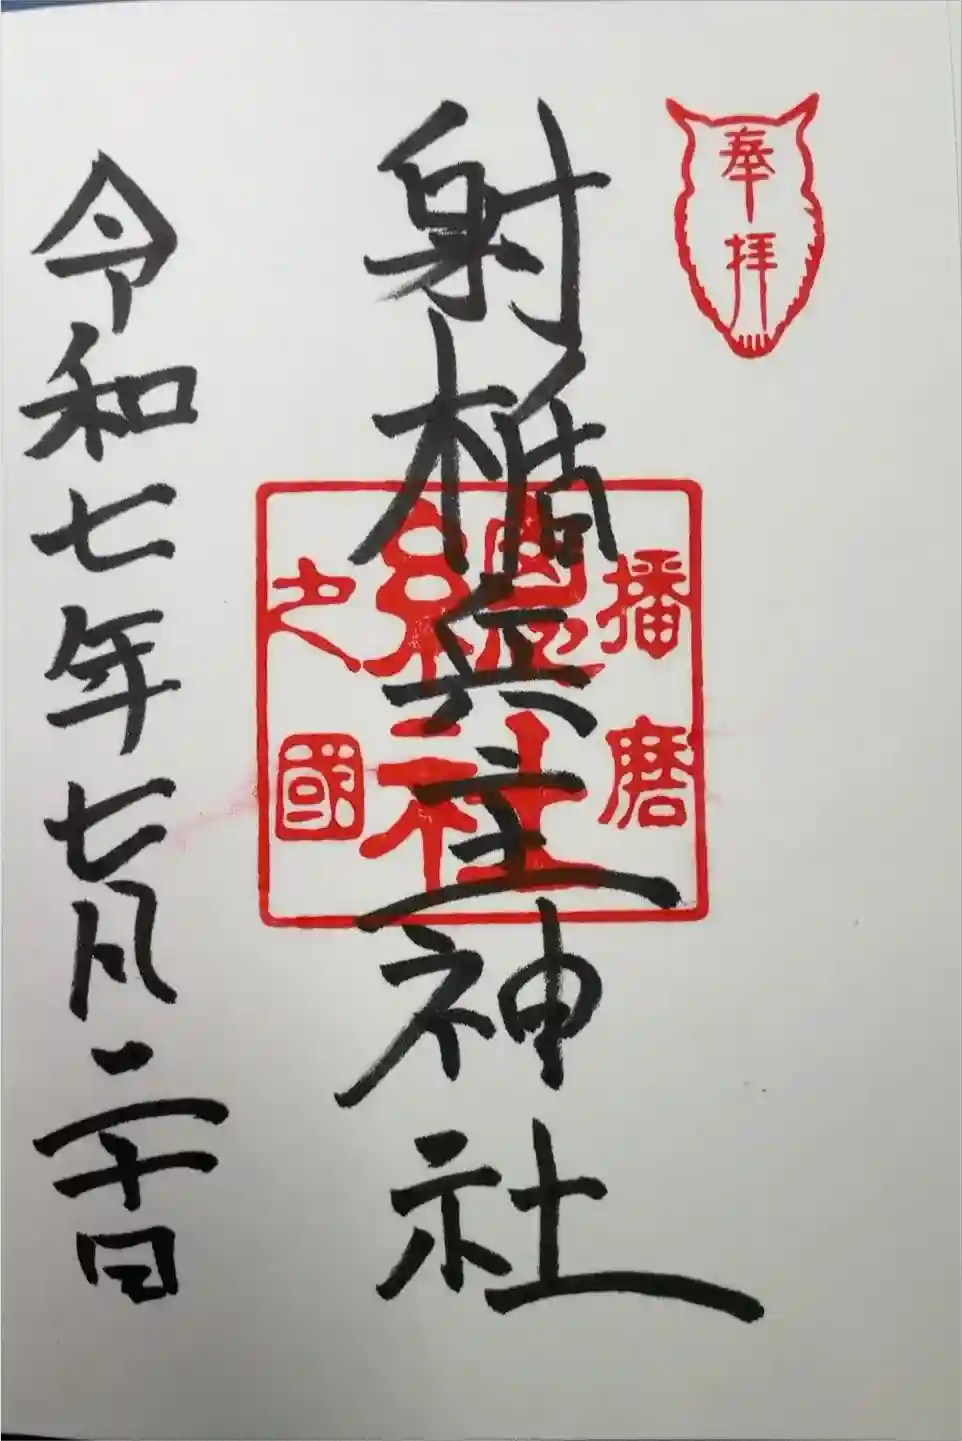 奉拝
播磨
總社
之國
射楯兵主神社
令和七年七月二十日